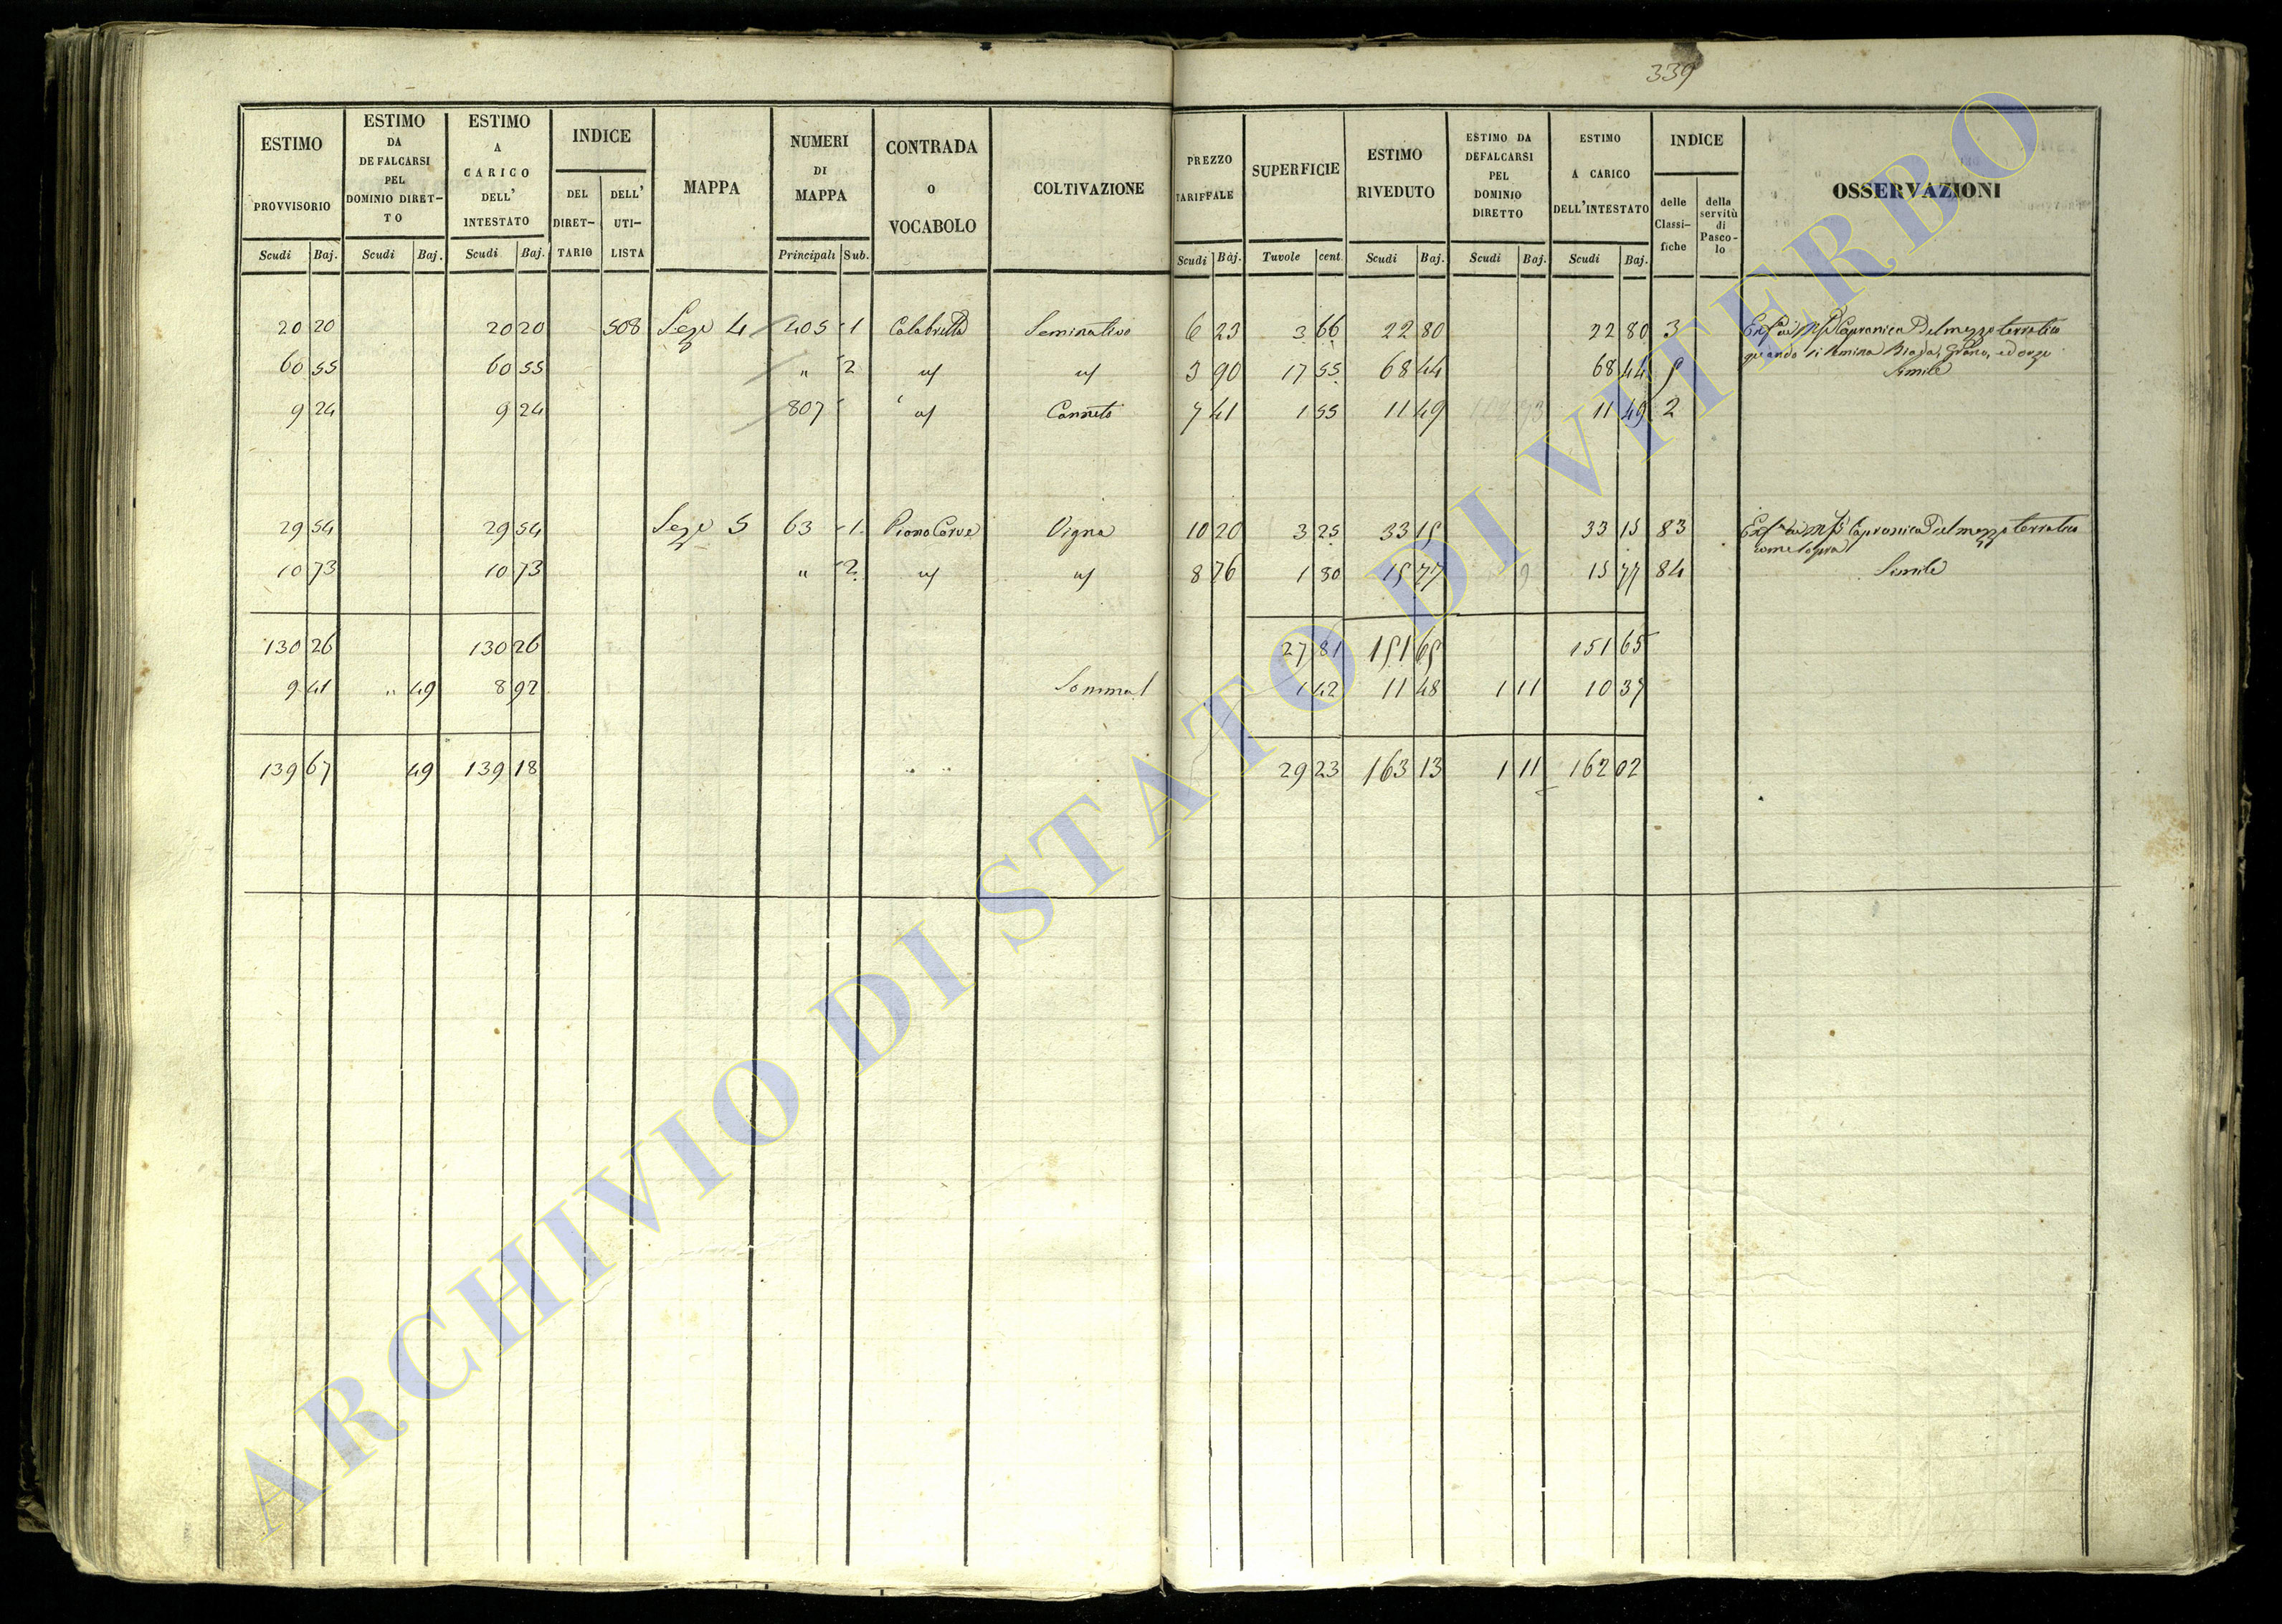 339
ESTIMO PROVVISORIO Scudi Baj.
ESTIMO DA DEFALCARSI PEL DOMINIO DIRET-TO Scudi Baj.
ESTIMO A CARICO DELL' INTESTATO Scudi Baj.
INDICE DEL DIRET-TARIO DELL' UTI-LISTA
MAPPA
NUMERI DI MAPPA Principali Sub.
CONTRADA O VOCABOLO
COLTIVAZIONE
PREZZO TARIFFALE Scudi Baj.
SUPERFICIE Tavole cent.
ESTIMO RIVEDUTO Scudi Baj.
ESTIMO DA DEFALCARSI PEL DOMINIO DIRETTO Scudi Baj.
ESTIMO A CARICO DELL'INTESTATO Scudi Baj.
INDICE delle Classi-fiche della servitù di Pasco-lo
OSSERVAZIONI
20 20 20 20 508 Sezе 4 405 1 Calabretta Seminativo 6 23 3 66 22 80 22 80 3 Capranica Del mezzo terratico
quando si semina Biada, Grano, ed orzo
60 55 60 55 " 2 3 90 17 55 68 44 68 44 5 Simile
9 24 9 24 807 Canneto 7 41 1 55 11 49 11 49 2
29 54 29 54 Sezе 5 63 1 Piano Cerve Vigna 10 20 3 25 33 15 33 15 83 Capranica Del mezzo terratico
come sopra
10 73 10 73 " 2 8 76 1 80 15 77 15 77 84 Simile
130 26 130 26 27 81 151 65 151 65
9 41 " 49 8 92 Somma 1 42 11 48 1 11 10 37
139 67 49 139 18 29 23 163 13 1 11 162 02
ARCHIVIO DI STATO DI VITERBO